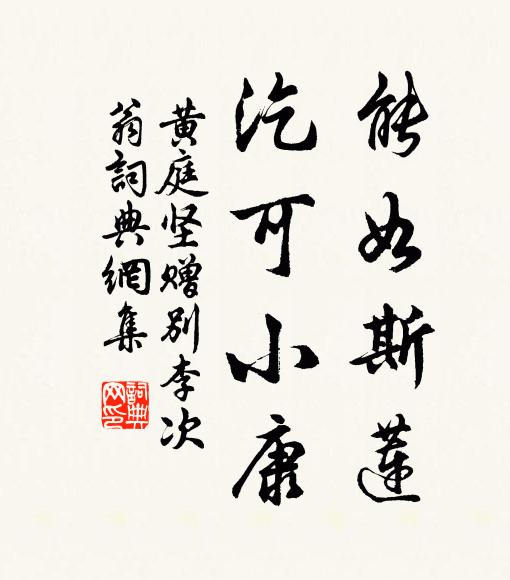 能如斯莲
汔可小康
黄庭坚赠别李次
翁詞典網集
詞典
网印